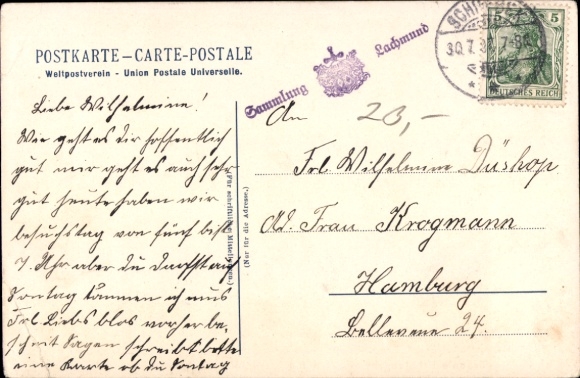 POSTKARTE – CARTE-POSTALE
Weltpostverein - Union Postale Universelle.
Sammlung Lachmund
5 5
DEUTSCHES REICH
30.7.
Liebe Wilhelmine!
Wie geht es dir hoffentlich
gut mir geht es auch sehr
gut heute haben wir
besuchstag von fünf bis
7 Uhr aber du darfst am
Sontag kommen ich mus
Frl. Liebs blos vorher be,
scheit sagen schreibt bitte
eine Karte ob du Sontag
(Für schriftliche Mitteilungen.)
(Nur für die Adresse.)
An 20,-
Frl. Wilhelmine Düshop
Ad. Frau Krogmann
Hamburg
Bellevue 24.